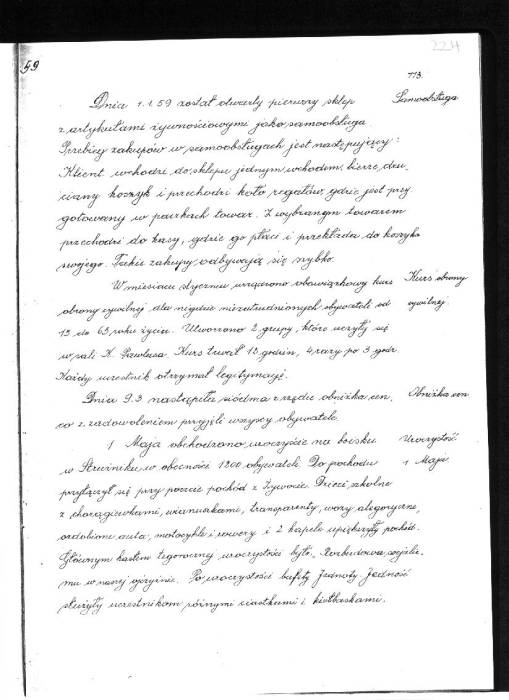 224
59
113.
Dnia 1.1.59 został otwarty pierwszy sklep
Samoobsługa
z artykułami żywnościowymi jako samoobsługa.
Przebieg zakupów w samoobsługach jest następujący:
Klient wchodzi do sklepu jednym wchodem, bierze dru-
ciany koszyk i przechodzi koło regałów, gdzie jest przy
gotowany w paczkach towar. Z wybranym towarem
przechodzi do kasy, gdzie go płaci i przekłada do koszyka
swojego. Takie zakupy odbywają się szybko.
W miesiącu styczniu urządzono obowiązkowy kurs
Kurs obrony
obrony cywilnej dla nigdzie niezatrudnionych obywateli od
cywilnej
15 do 65 roku życia. Utworzono 2 grupy, które uczyły się
w sali K. Pawlasa. Kurs trwał 12 godzin, 4 razy po 3 godz.
Każdy uczestnik otrzymał legitymację.
Dnia 9.3 nastąpiła siódma z rzędu obniżka cen,
Obniżka cen
co z zadowoleniem przyjęli wszyscy obywatele.
1 Maja obchodzono uroczyście na boisku
Uroczystość
w Strumniku w obecności 1200 obywateli. Do pochodu
1 Maja
przyłączył się przy poczcie pochód z Żywocic. Dzieci szkolne
z chorągiewkami, wianuszkami, transparenty, wozy alegoryczne,
ozdobione auta, motocykle i rowery i 2 kapele upiększyły pochód.
Głównym hasłem tegorocznej uroczystości było: Rozbudowa socjaliz-
mu w naszej ojczyźnie. Po uroczystości bufety Jednoty-Jedność
służyły uczestnikom różnymi ciastkami i kiełbaskami.